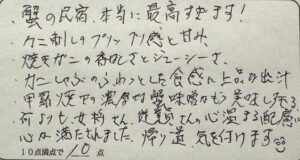 蟹の民宿、本当に最高すぎます!
・カニ刺しのプリップリ感と甘み、
・焼きガニの香ばしさとジューシーさ、
・カニしゃぶのふわっとした食感に上品な出汁
・甲羅焼きの濃厚な蟹味噌がもう美味しすぎる
何よりも女将さん、従業員さんの心温まる配慮に
心から満たされました、帰り道、気を付けます
10点満点で / 10 点